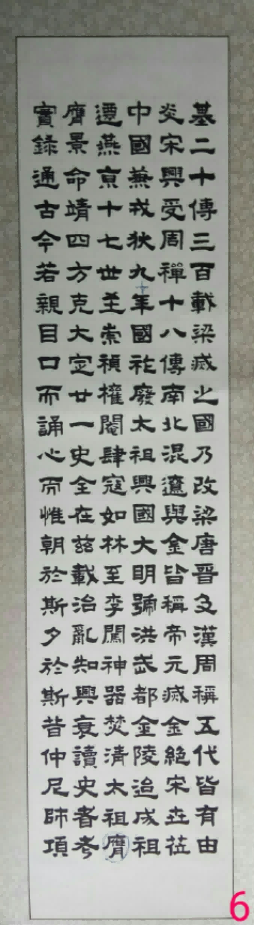 基二十傳三百載梁滅之國乃改梁唐晉及漢周稱五代皆有由
炎宋興受周禪十八傳南北混遼與金皆稱帝元滅金絕宋世莅
中國兼戎狄九十年國祚廢太祖興國大明號洪武都金陵迨成祖
遷燕京十七世至崇禎權閹肆寇如林至李闖神器焚清太祖膺
膺景命靖四方克大定廿一史全在茲載治亂知興衰讀史者考
實錄通古今若親目口而誦心而惟朝於斯夕於斯昔仲尼師項
6